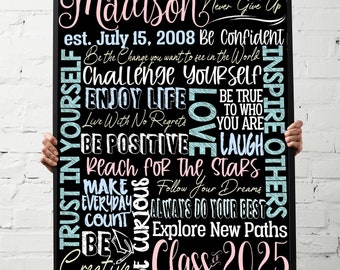 Madison
Never Give Up
est. July 15, 2008 Be Confident
Be the Change you want to see in the World
Challenge Yourself
ENJOY LIFE
BE TRUE
TO WHO
YOU ARE
Live With No Regrets
LOVE
BE POSITIVE
LAUGH
Reach FOR THE STARS
TRUST IN YOURSELF
INSPIRE OTHERS
MAKE
EVERYDAY
COUNT
BE CURIOUS
Follow Your Dreams
ALWAYS DO YOUR BEST
Explore New Paths
BE
Creative
Class of 2025